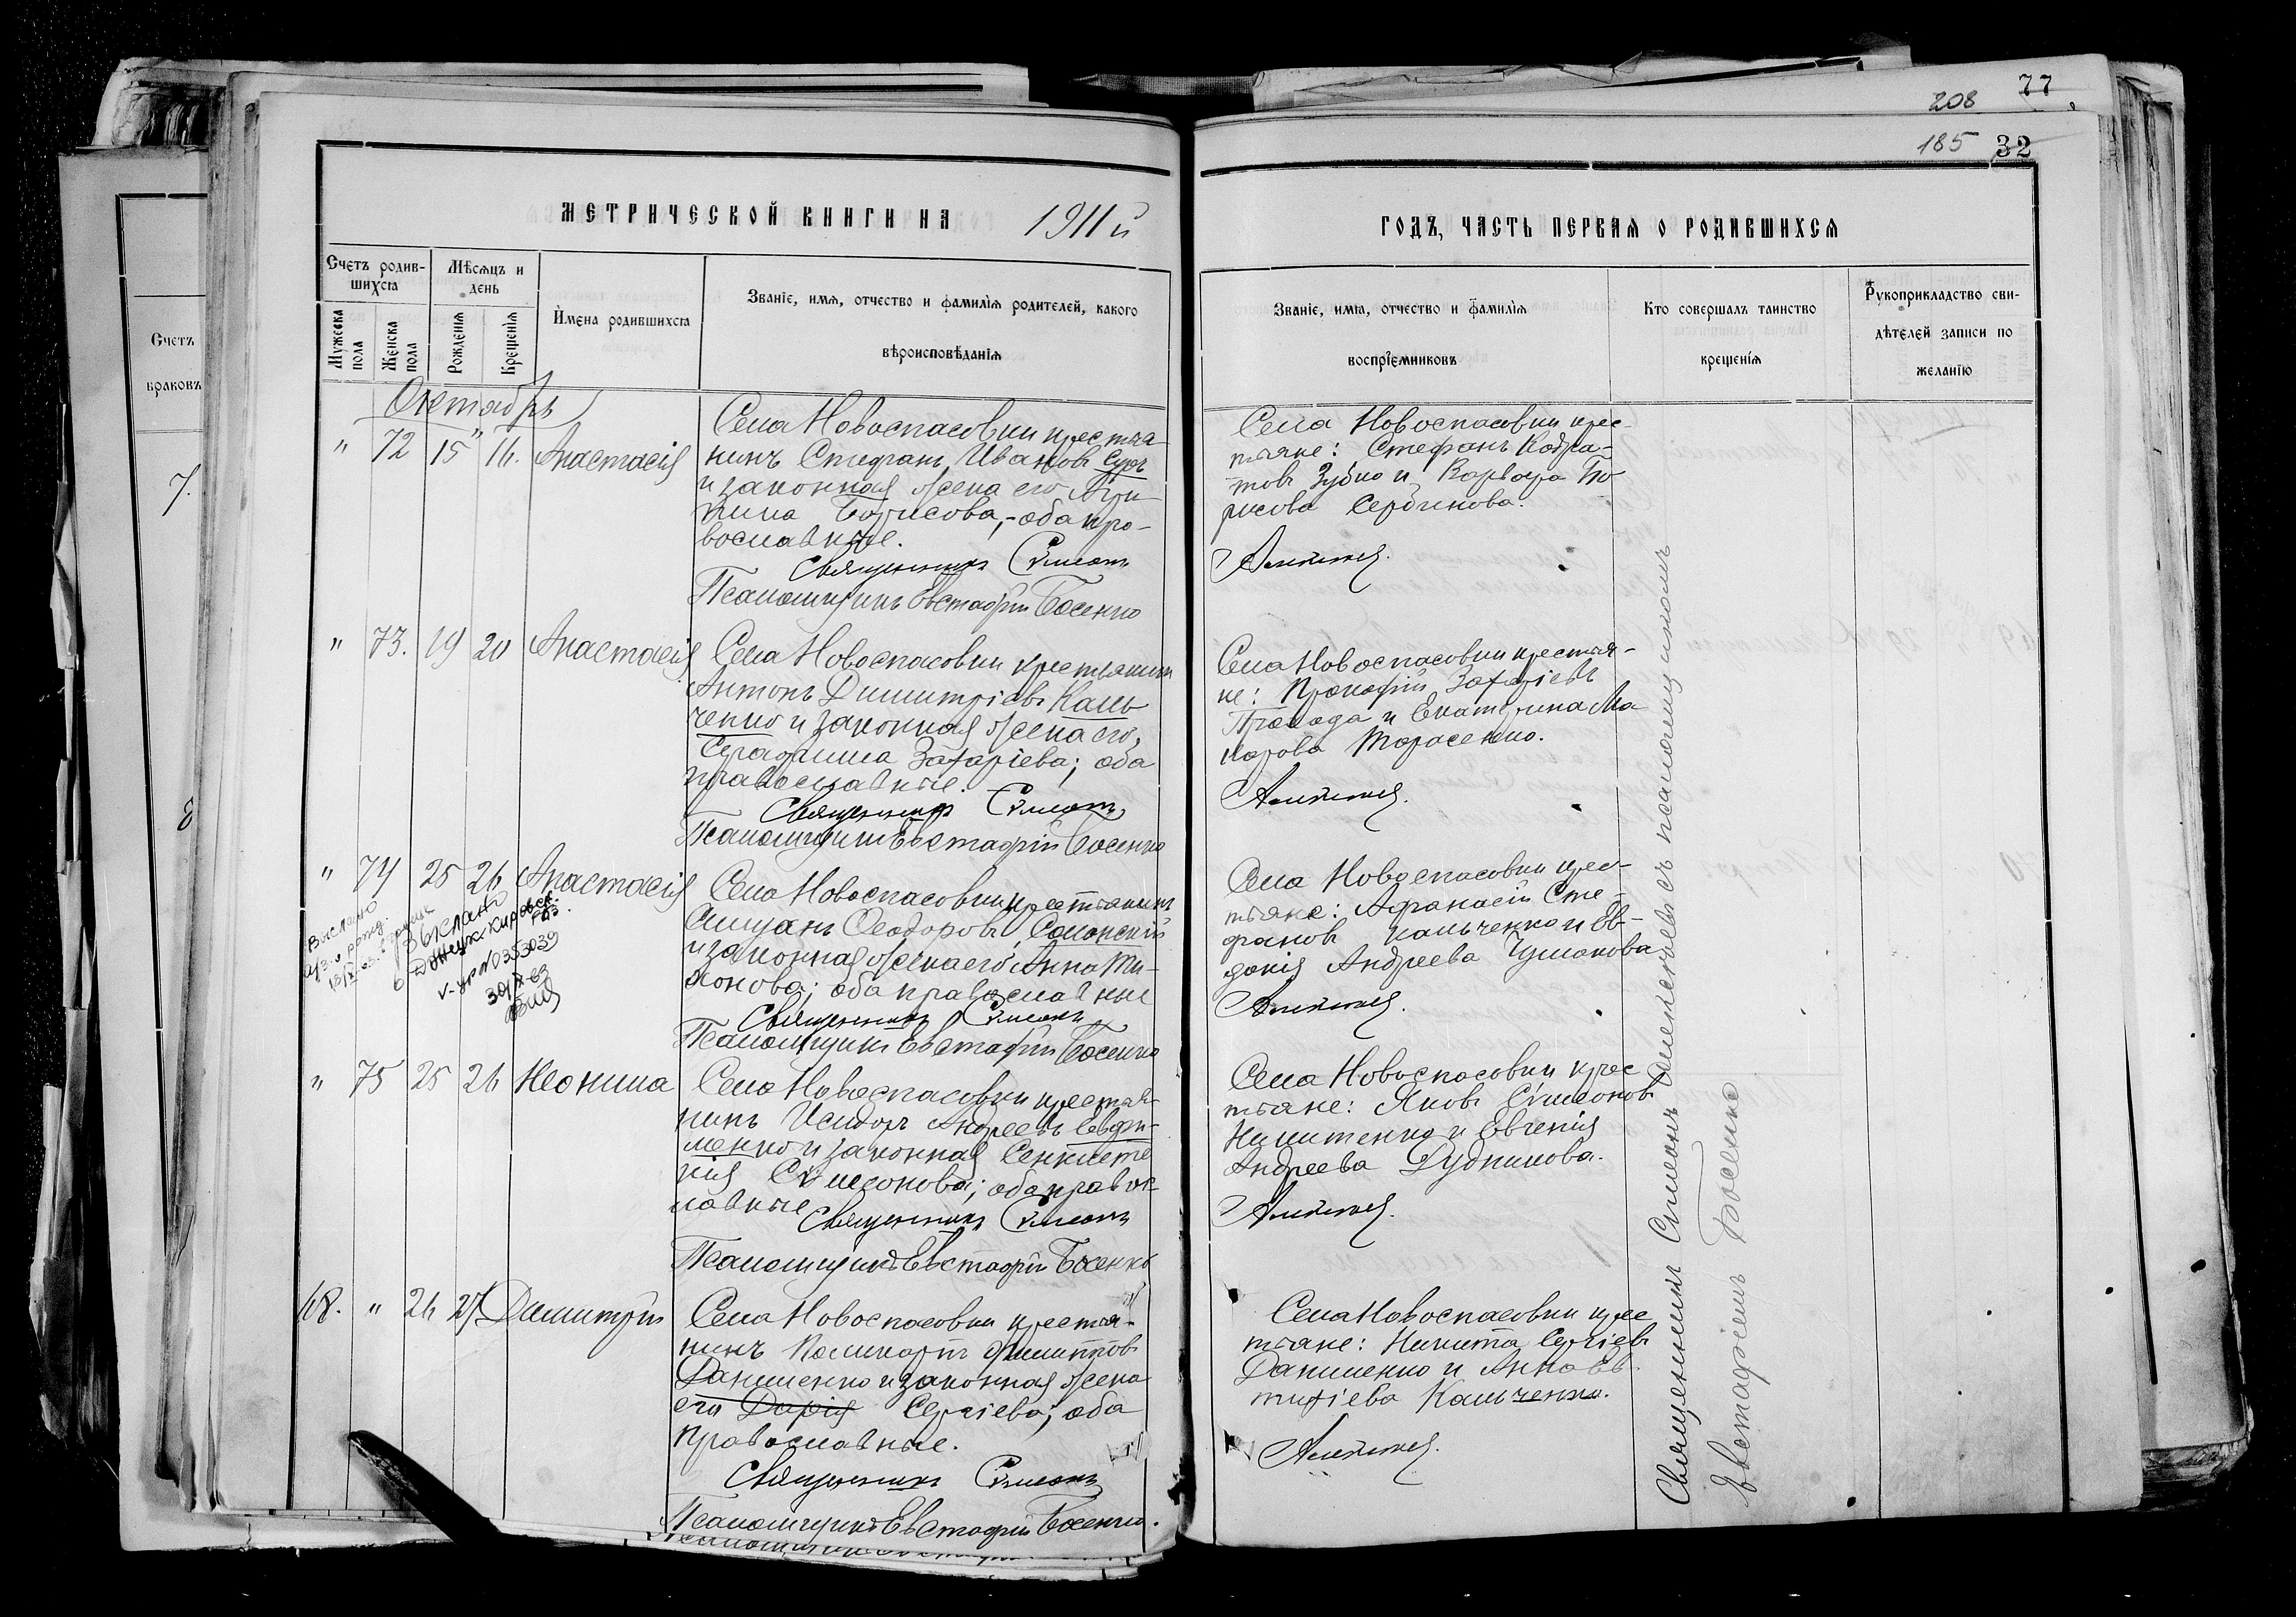 77
208
185 32
МЕТРИЧЕСКОЙ КНИГИ НА 1911й
ГОДЪ, ЧАСТЬ ПЕРВАЯ О РОДИВШИХСЯ
Счетъ родив-
шихся
Мѣсяцъ и
день
Мужеска
пола
Женска
пола
Рожденія
Крещенія
Имена родившихся
Званіе, имя, отчество и фамилія родителей, какого
вѣроисповѣданія
Званіе, имя, отчество и фамилія
воспріемниковъ
Кто совершалъ таинство
крещенія
Рукоприкладство сви-
дѣтелей записи по
желанію
Счетъ
браковъ
7.
8
Октябрь
" 72 15 16. Анастасія
Села Новоспасовки крестья-
нинъ Стефанъ Ивановъ
и законная жена его
Борисова,- оба пра-
вославные.
Священникъ Сѵмеонъ
Псаломщикъ Евстафій Босенко
Села Новоспасовки крес-
тьяне: Стефанъ Кодра-
товъ Зубко и Варвара Бо-
рисова Сербинова.
" 73. 19 20 Анастасія
Села Новоспасовки крестьянинъ
Антонъ Димитріевъ Каль-
ченко и законная жена его,
Серафима Захаріева; оба
православные.
Священникъ Сѵмеонъ
Псаломщикъ Евстафій Босенко
Села Новоспасовки крестья-
не: Прокофій Захаріевъ
и Екатерина Ма-
карова Тарасенко.
" 74 25 26 Анастасія
Села Новоспасовки крестьянинъ
Ѳеодоровъ
и законная жена его Анна Ти-
хонова; оба православные
Священникъ Сѵмеонъ
Псаломщикъ Евстафій Босенко
Выслано
Выслано
№ 0353039
Села Новоспасовки крес-
тьяне: Афанасій Сте-
фановъ Кальченко и Ев-
докія Андреева Чумакова
" 75 25 26 Неонила
Села Новоспасовки крестья-
нинъ Исидоръ Андреевъ Евфи-
менко и законная Сенклити-
кія Сѵмеонова; оба правос-
лавные
Священникъ Сѵмеонъ
Псаломщикъ Евстафій Босенко
Села Новоспасовки крес-
тьяне: Яковъ Сѵмеоновъ
Никитенко и Евгенія
Андреева Дудникова.
68. " 26 27 Димитрій
Села Новоспасовки крестья-
нинъ Поликарпъ Филипповъ
Даниленко и законная жена
его Дарія Сергіева; оба
православные.
Священникъ Сѵмеонъ
Псаломщикъ Евстафій Босенко.
Села Новоспасовки крес-
тьяне: Никита Сергіевъ
Даниленко и Анна Ев-
тихіева Кальченко.
Священникъ Сѵмеонъ съ псаломщикомъ
Евстафіемъ Босенко